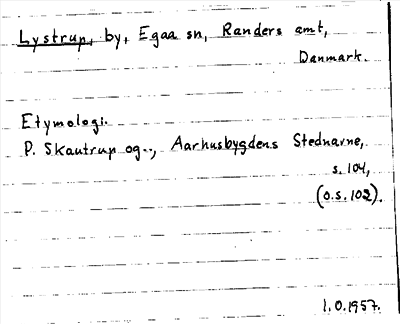 Lystrup, by, Egaa sn, Randers amt,
Danmark.
Etymologi.
P. Skautrup og.., Aarhusbygdens Stednavne,
s. 104,
(o.s. 102).
1.0.1957.